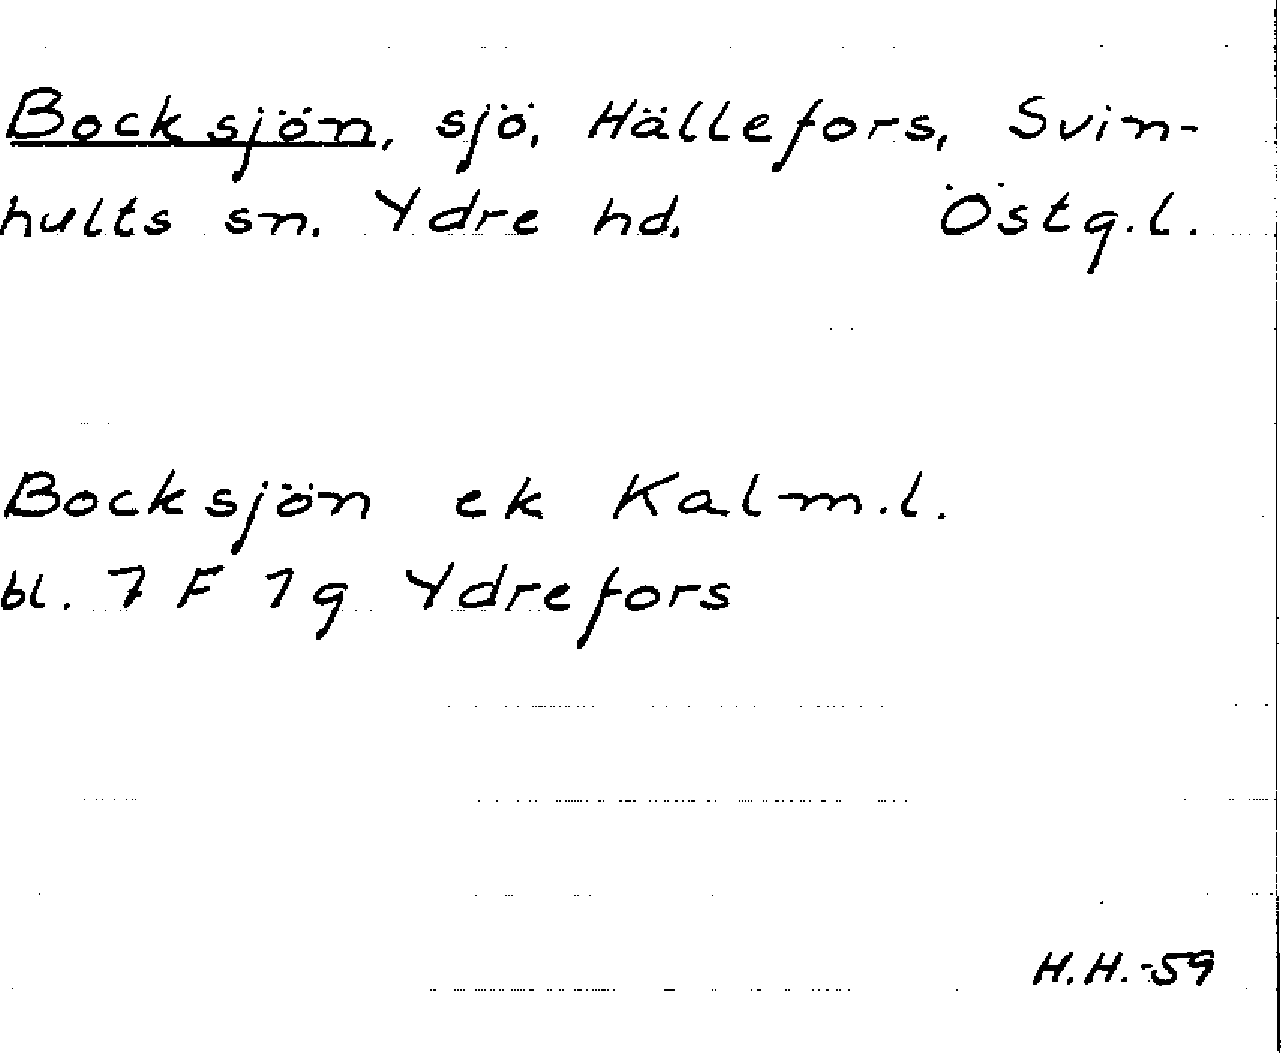 Bocksjön, sjö, Hällefors, Svin-
hults sn. Ydre hd. Östg.l.
Bocksjön ek Kalm.l.
bl. 7 F 1g Ydrefors
H.H.-59